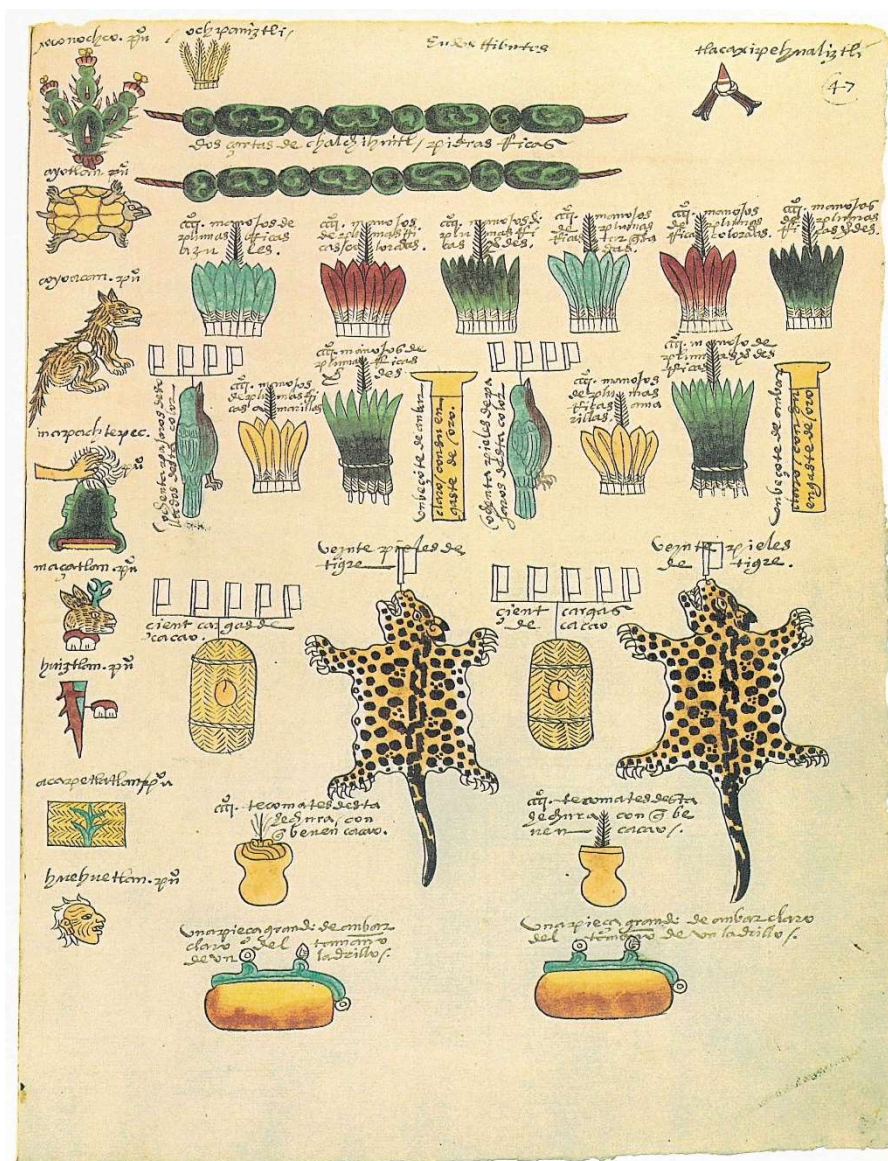 xoconochco. pũ
ochpaniztli /
En dos tributos
tlacaxipehualiztli
47
dos sartas de chalchihuitl / piedras rricas
ayotlan. pũ
cccc. manojos de
plumas rricas
azules.
cccc. manojos
de plumas rri
cas coloradas.
cccc. manojos d.
plumas rri
cas verdes.
cccc. manojos
de plumas
rricas
cccc. manojos
de plumas
rricas coloradas.
cccc. manojos
de plumas
rricas verdes.
coyoacan. pũ
cccc. manojos de
plumas rricas
verdes
cccc. manojos de
plumas verdes
rricas
cccc. manojos
de plumas rri
cas amarillas
cccc. manojos
de plumas
rricas ama
rillas.
mapachtepec.
pũ
Un beçote de ambar
claro / con su en
gaste de oro.
ochenta pieles de pa
jaros desta color
Un beçote de ambar
claro con su
engaste de / oro
veinte pieles de
tigre
veinte pieles
de tigre.
maçatlan. pũ
cient cargas de
cacao.
cient cargas
de cacao
huiztlan. pũ
acapetlatlan / pũ
cccc. tecomates desta
hechura, con
q̃ beuen cacao.
cccc. tecomates desta
hechura con q̃ be
uen cacao /.
huehuetlan. pũ
Una pieça grande de ambar
claro del tamaño
de un ladrillo /.
Una pieça grande de ambar claro
del tamaño de un ladrillo /.